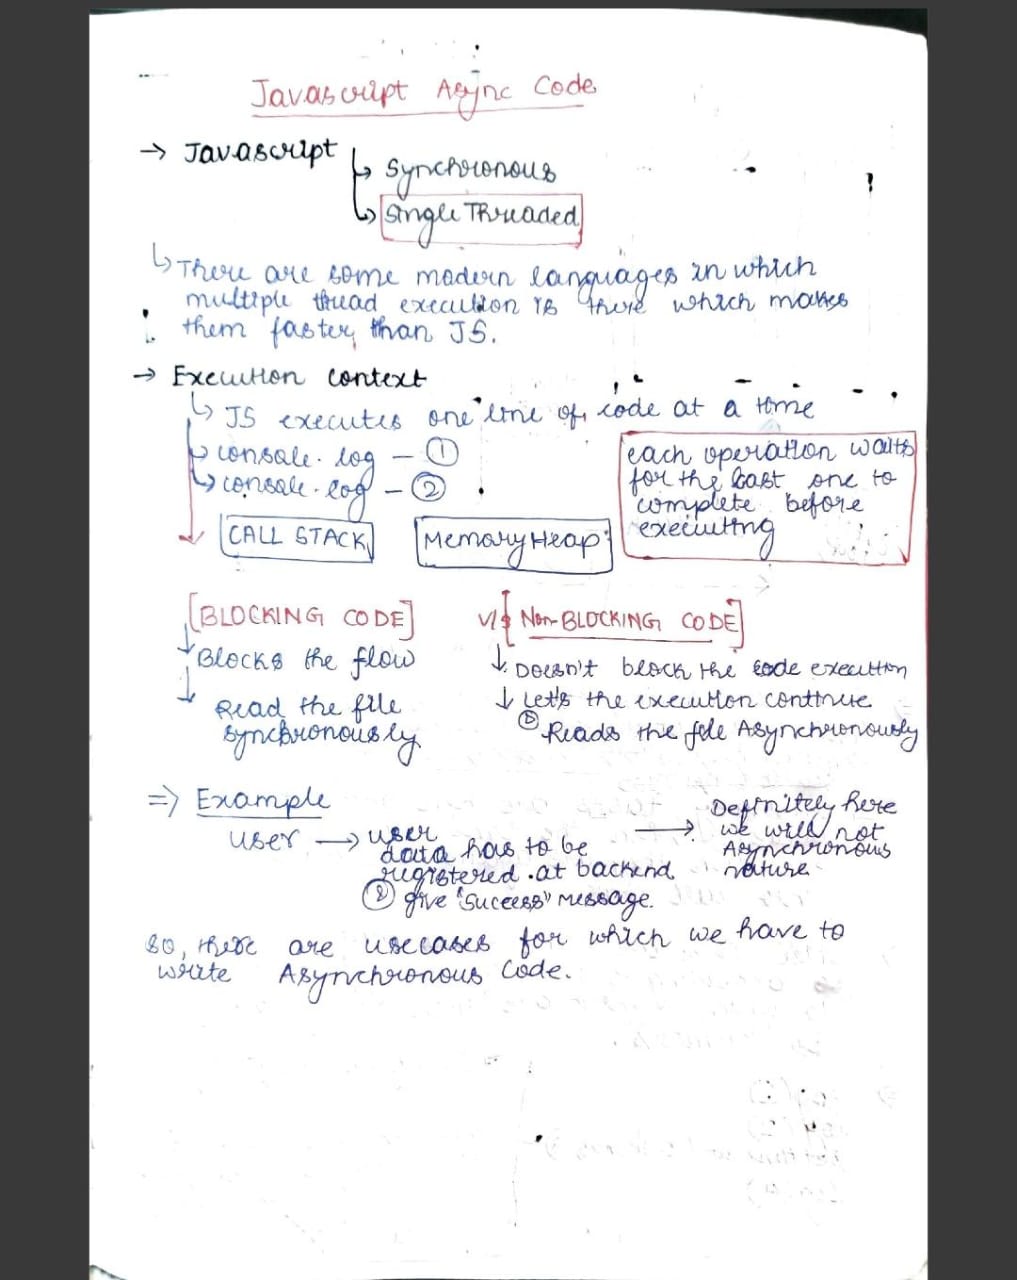 Javascript Async Code
→ Javascript
↳ Synchronous
↳ Single Threaded
↳ There are some modern languages in which
multiple thread execution is there which makes
them faster than JS.
→ Execution context
↳ JS executes one line of code at a time
↳ console.log – ①
↳ console.log – ②
each operation waits
for the last one to
complete before
executing
CALL STACK
Memory Heap
[BLOCKING CODE] v/s [Non-BLOCKING CODE]
↓ Blocks the flow
↓ Read the file
synchronously
↓ Doesn't block the code execution
↓ Let's the execution continue
Reads the file Asynchronously
⇒ Example
user → user
data has to be
registered at backend
② give "Success" message.
→ Definitely here
we will not
Asynchronous
nature
so, there are usecases for which we have to
write Asynchronous Code.